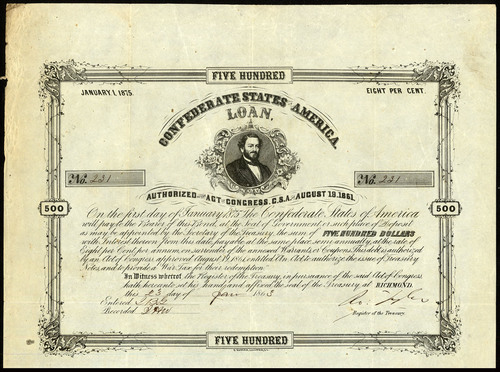 FIVE HUNDRED
JANUARY 1, 1875.
EIGHT PER CENT.
CONFEDERATE STATES AMERICA
LOAN.
No. 231
No. 231
AUTHORIZED ACT CONGRESS, C.S.A. AUGUST 19, 1861.
500
500
On the first day of January 1875 the Confederate States of America
will pay to the Bearer of this Bond, at the seat of Government or such place of Deposit
as may be appointed by the Secretary of the Treasury, the sum of FIVE HUNDRED DOLLARS
with Interest thereon from this date, payable at the same place, semi annually, at the rate of
Eight per Cent per annum, on surrender of the annexed Warrants or Coupons. This debt is authorized
by an Act of Congress approved August 19, 1861, entitled An Act to authorize the issue of Treasury
Notes, and to provide a War Tax for their redemption.
In Witness whereof the Register of the Treasury, in pursuance of the said Act of Congress,
hath hereunto set his hand and affixed the seal of the Treasury at RICHMOND,
this 23 day of Jan 1863
Entered
Recorded
Register of the Treasury.
FIVE HUNDRED